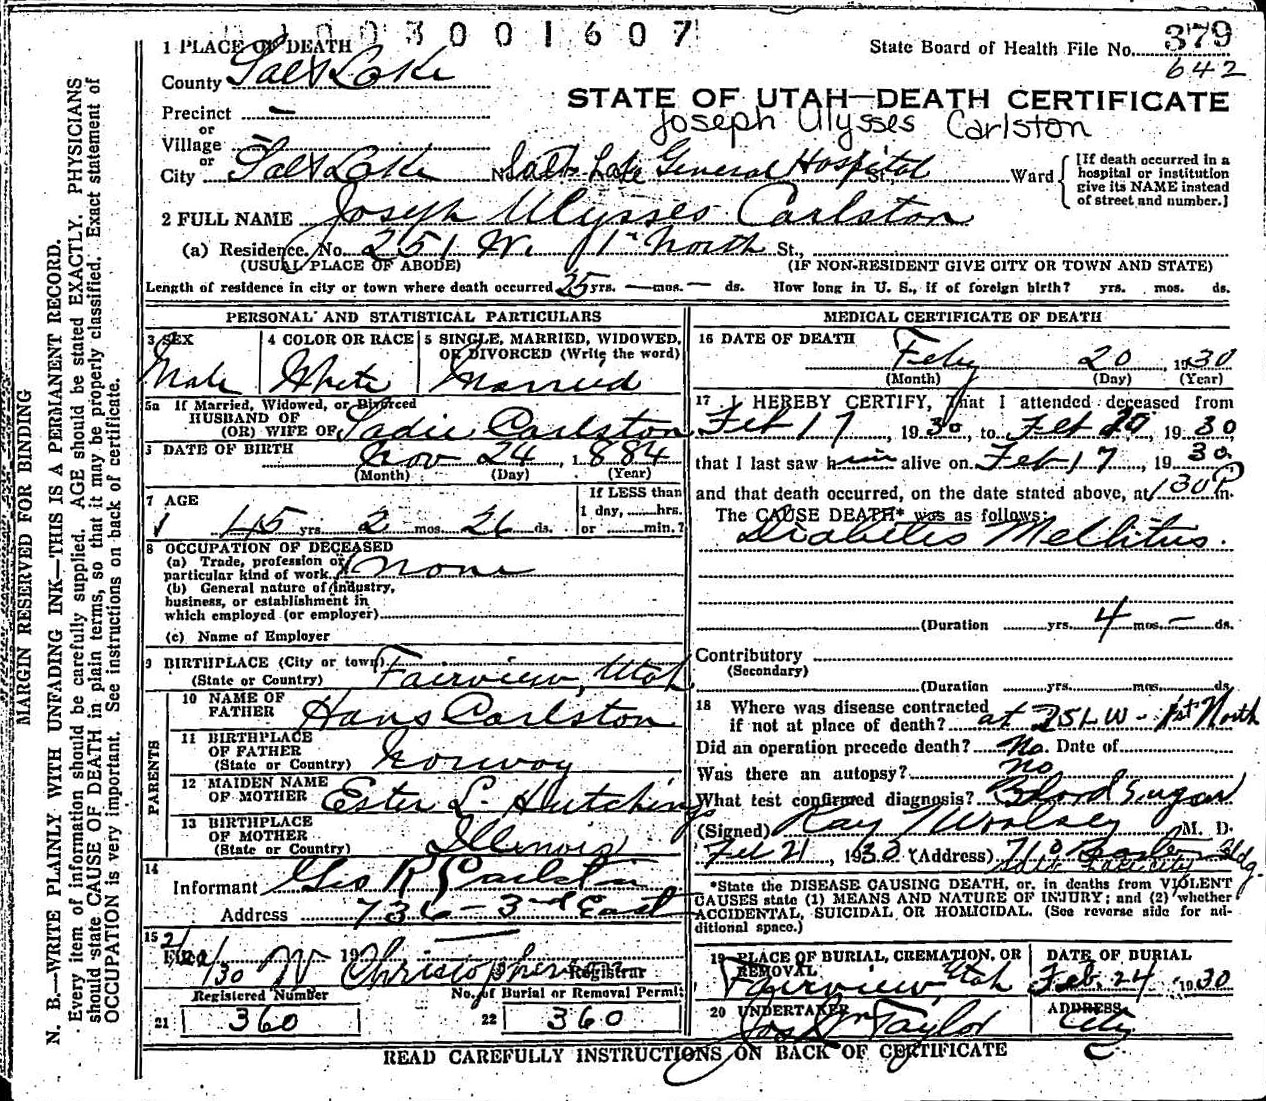 003001607
1 PLACE OF DEATH
State Board of Health File No. 379
642
County Salt Lake
STATE OF UTAH—DEATH CERTIFICATE
Joseph Ulysses Carlston
Precinct —
or
Village —
or
City Salt Lake No. Salt Lake General Hospital St., Ward
[If death occurred in a hospital or institution give its NAME instead of street and number.]
2 FULL NAME Joseph Ulysses Carlston
(a) Residence. No. 251 W. 1st North St.,
(USUAL PLACE OF ABODE) (IF NON-RESIDENT GIVE CITY OR TOWN AND STATE)
Length of residence in city or town where death occurred 25 yrs. — mos. — ds. How long in U. S., if of foreign birth? yrs. mos. ds.
PERSONAL AND STATISTICAL PARTICULARS
3 SEX 4 COLOR OR RACE 5 SINGLE, MARRIED, WIDOWED, OR DIVORCED (Write the word)
Male White Married
5a If Married, Widowed, or Divorced
HUSBAND OF
(OR) WIFE OF Sadie Carlston
DATE OF BIRTH Nov 24, 1884
(Month) (Day) (Year)
7 AGE
45 yrs. 2 mos. 26 ds.
If LESS than
1 day, hrs.
or min.?
8 OCCUPATION OF DECEASED
(a) Trade, profession or
particular kind of work None
(b) General nature of industry,
business, or establishment in
which employed (or employer)
(c) Name of Employer
9 BIRTHPLACE (City or town)
(State or Country) Fairview, Utah
PARENTS
10 NAME OF
FATHER Hans Carlston
11 BIRTHPLACE
OF FATHER
(State or Country) Norway
12 MAIDEN NAME
OF MOTHER Ester L. Hutchings
13 BIRTHPLACE
OF MOTHER
(State or Country) Illinois
14
Informant Geo R Carlston
Address 736 - 3rd East
15
Filed 2/22/30 19 W Christopherson Registrar
Registered Number No. of Burial or Removal Permit
21 360 22 360
MEDICAL CERTIFICATE OF DEATH
16 DATE OF DEATH Feby 20 1930
(Month) (Day) (Year)
17 I HEREBY CERTIFY, That I attended deceased from
Feb 17, 1930, to Feb 20, 1930,
that I last saw him alive on Feb 17, 1930
and that death occurred, on the date stated above, at 130 P m.
The CAUSE DEATH* was as follows:
Diabetes Mellitus.
(Duration yrs. 4 mos. — ds.
Contributory
(Secondary)
(Duration yrs. mos. ds.
18 Where was disease contracted
if not at place of death? at 251 W - 1st North
Did an operation precede death? No. Date of
Was there an autopsy? no
What test confirmed diagnosis? Blood Sugar
(Signed) Ray T Woolsey M. D.
Feb 21, 1930 (Address) 710 Bldg.
Salt Lake City
*State the DISEASE CAUSING DEATH, or, in deaths from VIOLENT
CAUSES state (1) MEANS AND NATURE OF INJURY; and (2) whether
ACCIDENTAL, SUICIDAL OR HOMICIDAL. (See reverse side for ad-
ditional space.)
19 PLACE OF BURIAL, CREMATION, OR REMOVAL DATE OF BURIAL
Fairview, Utah Feb. 24 1930
20 UNDERTAKER ADDRESS
Jos Wm Taylor City
READ CAREFULLY INSTRUCTIONS ON BACK OF CERTIFICATE
MARGIN RESERVED FOR BINDING
N. B.—WRITE PLAINLY WITH UNFADING INK—THIS IS A PERMANENT RECORD.
Every item of information should be carefully supplied. AGE should be stated EXACTLY. PHYSICIANS
should state CAUSE OF DEATH in plain terms, so that it may be properly classified. Exact statement of
OCCUPATION is very important. See instructions on back of certificate.